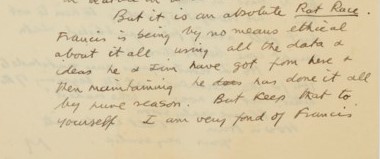 But it is an absolute Rat Race.
Francis is being by no means ethical
about it all using all the data &
ideas he & Jim have got from here &
then maintaining he does has done it all
by pure reason. But keep that to
yourself I am very fond of Francis